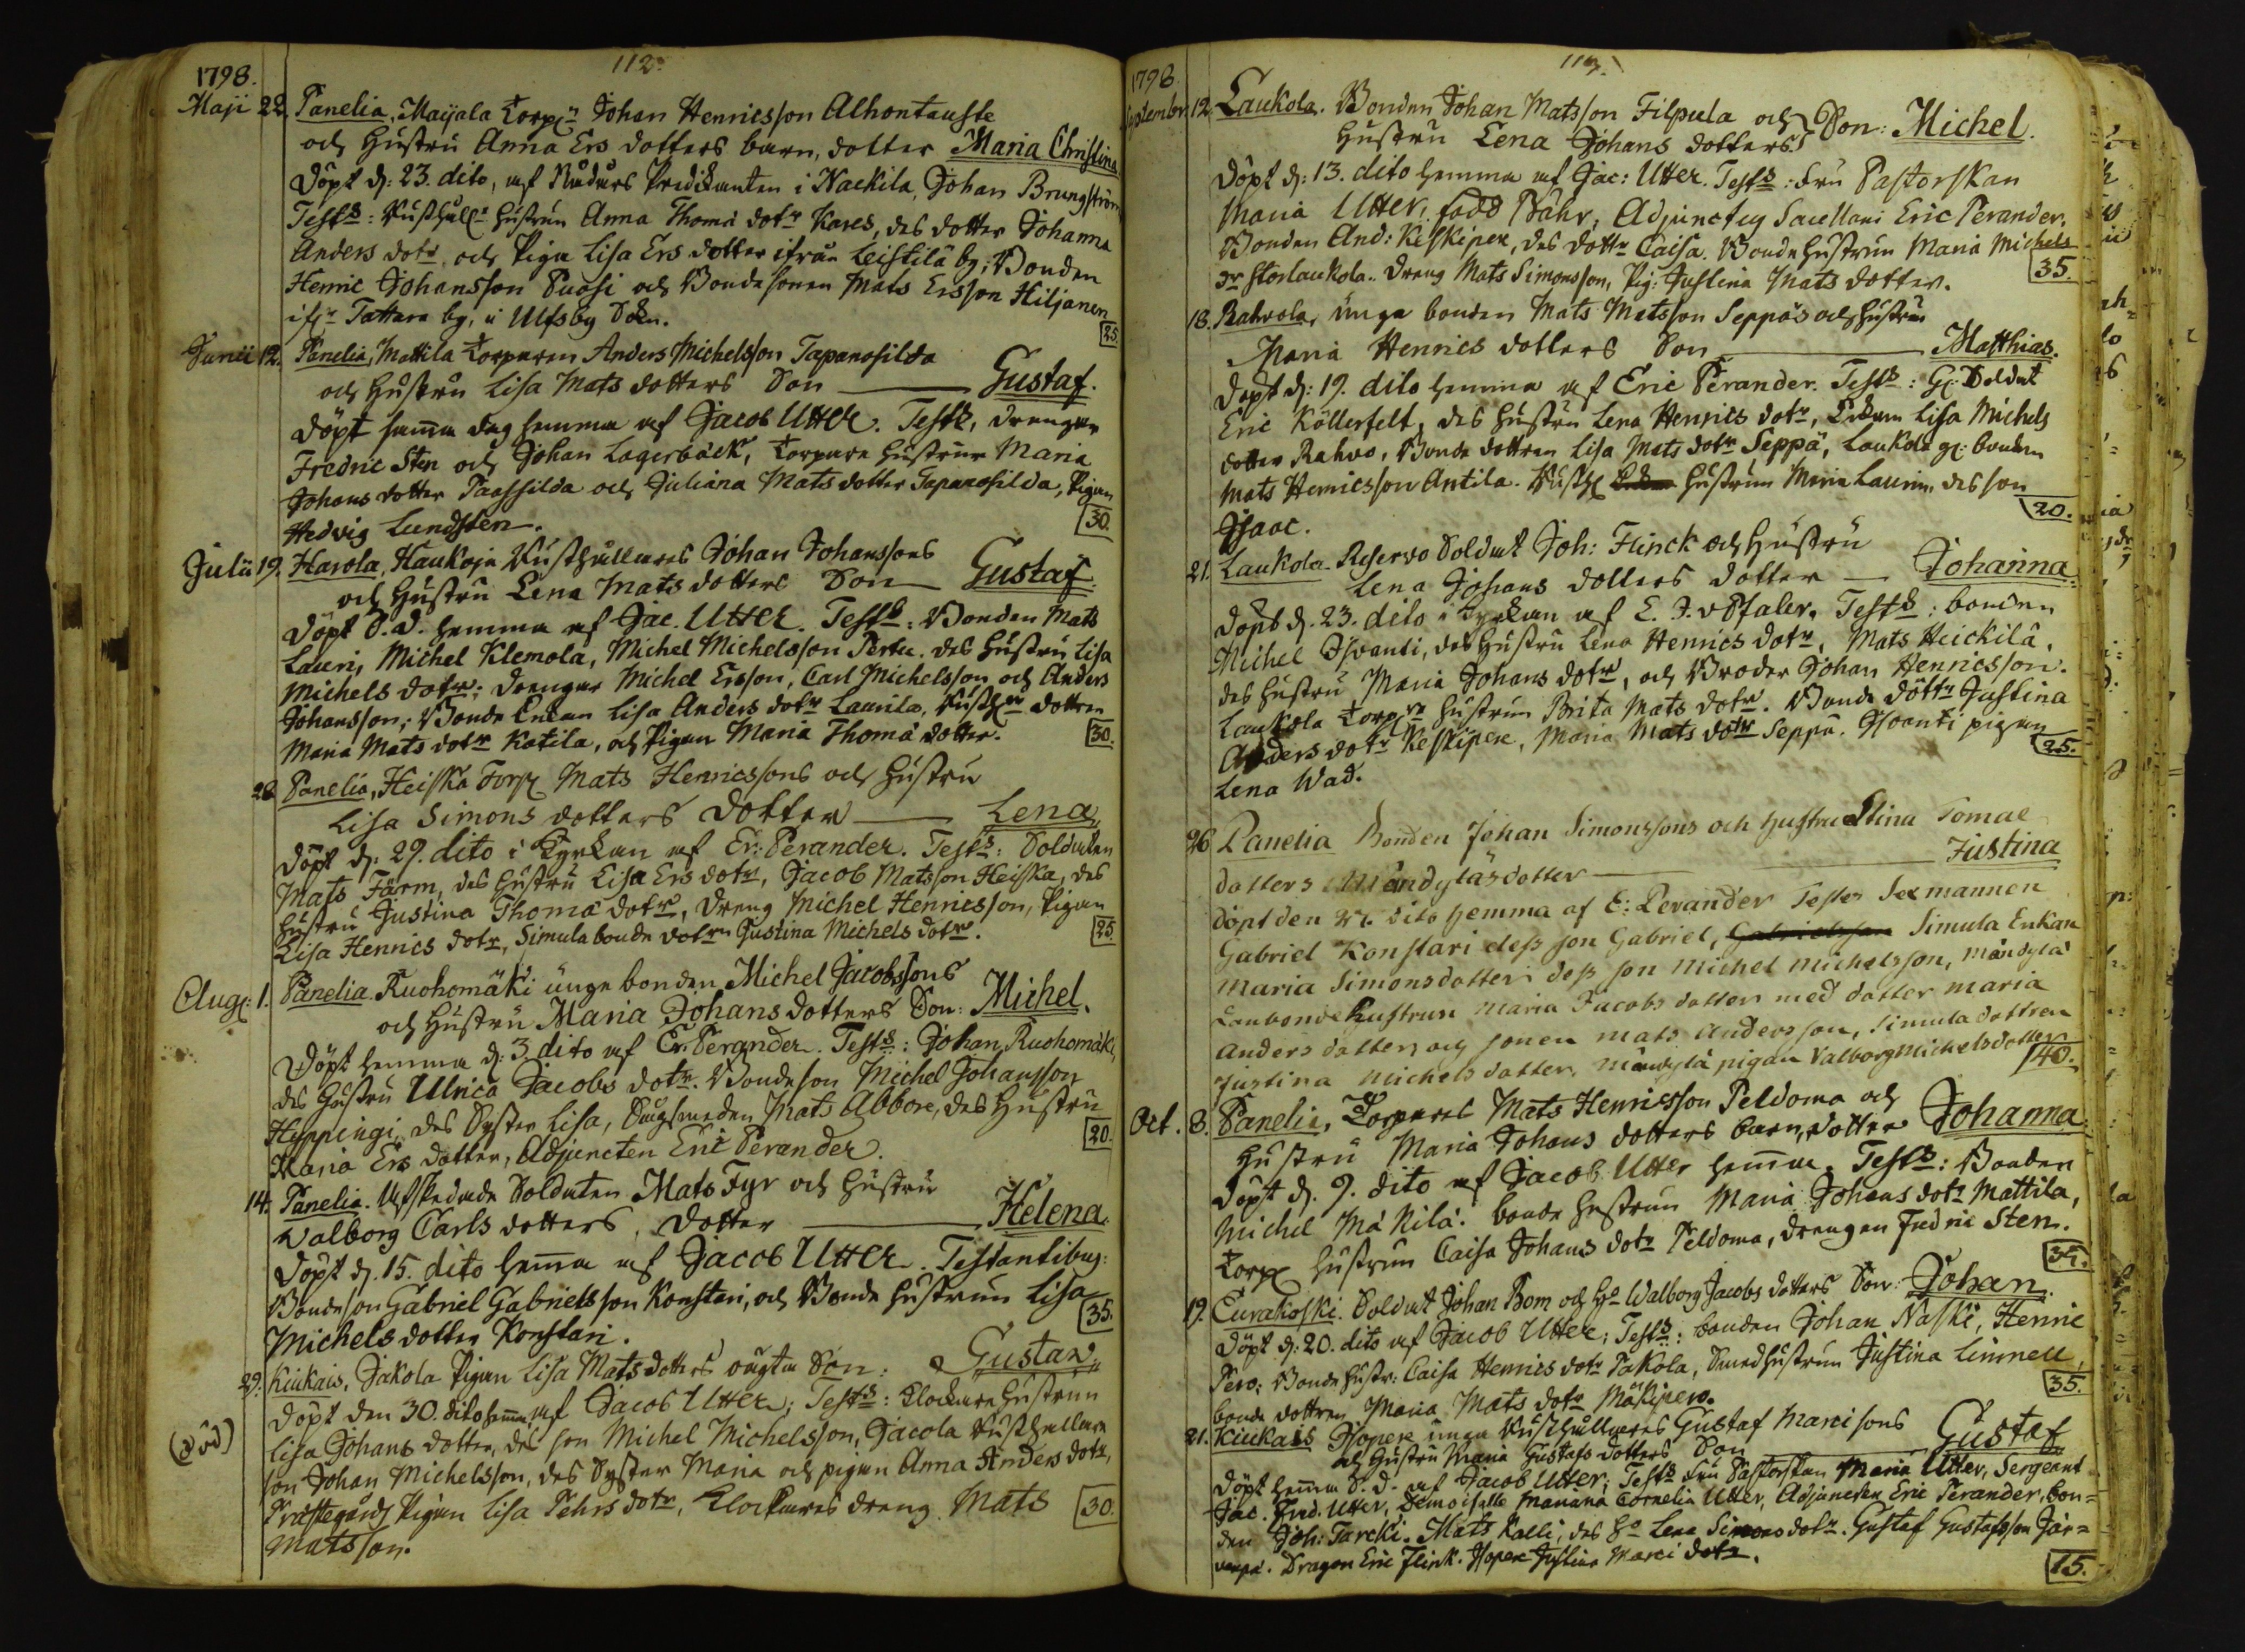 112.
1798.
Maji 22. Panelia, Maijala Torp:n Johan Henricsson Alhontauste
och Hustru Anna Ers dotters barn, dotter Maria Christina
döpt d: 23. dito, af Nådårs Predikanten i Nackila, Johan Brungström
Test:s: Rusthåll:s Hustrun Anna Thomæ dot:r Kares, des dotter Johanna
Anders dot:r och Pigan Lisa Ers dotter ifrån Leistilä by; Bonden
Henric Johansson Suosi och Bondesonen Mats Ersson Hiljanen
ifr: Tattara by, i Ulfsby Sokn.
25.
Junii 12. Panelia, Mattila Torparen Anders Michelsson Tapanosilda
och Hustru Lisa Mats dotters Son Gustaf.
döpt samma dag hemma af Jacob Utter. Test:s, drengar
Fredric Sten och Johan Lagerbäck, Torpare Hustrur Maria
Johans dotter Paassilda och Juliana Mats dotter Tapanosilda, Pigan
Hedvig Lundsten.
30.
Julii 19. Harola, Haukoja Rusthållares Johan Johanssons
och Hustru Lena Mats dotters Son Gustaf.
döpt S. D. hemma af Jac. Utter. Test:s: Bonden Mats
Lauri, Michel Klemola, Michel Michelsson Pertu. des Hustru Lisa
Michels dot:r; drengar Michel Ersson, Carl Michelsson och Anders
Johansson; Bonde Enkan Lisa Anders dot:r Laurila, Rusth:rs dottren
Maria Mats dot:r Katila, och Pigan Maria Thomæ dotter.
30.
28. Panelia, Heiska Torp: Mats Henricssons och Hustru
Lisa Simons dotters dotter Lena,
döpt d: 29. dito i Kyrkan af Er: Perander. Test:s: Soldaten
Mats Färm, des Hustru Lisa Ers dot:r, Jacob Matsson Heiska, des
Hustru Justina Thomæ dot:r, dreng Michel Henricsson, Pigan
Lisa Henrics dot:r, Simula bonde dot:rn Justina Michels dot:r.
25.
Aug: 1. Panelia Ruohomäki unge bonden Michel Jacobssons
och Hustru Maria Johans dotters Son: Michel.
döpt hemma d: 3 dito af Er. Perander. Test:s: Johan Ruohomäki,
des Hustru Ulrica Jacobs dot:r. Bondeson Michel Johansson
Hyppingi, des Syster Lisa, Smeden Mats Abbore, des Hustru
Maria Ers dotter, Adjuncten Eric Perander.
20.
14. Panelia. Afskedade Soldaten Mats Fyr och Hustru
Walborg Carls dotters, dotter Helena.
döpt d: 15. dito hemma af Jacob Utter. Testantibus:
Bondeson Gabriel Gabrielsson Konstari, och Bonde Hustrun Lisa
Michels dotter Konstari.
35.
29. Kiukais, Jakola Pigan Lisa Mats dotters oägta Son: Gustav
döpt den 30. dito hemma, af Jacob Utter; Test:s: Klockare Hustrun
(död)
Lisa Johans dotter, des son Michel Michelsson, Jacola Rusthållare
son Johan Michelsson, des Syster Maria och pigan Anna Anders dot:r,
Prästegårds Pigan Lisa Pehrs dot:r, Klockares dreng Mats
Matsson.
30.
113.
1798
September 12. Laukola. Bonden Johan Matsson Filpula och
Hustru Lena Johans dotters Son: Michel.
döpt d: 13. dito hemma af Jac: Utter. Test:s: Fru Pastorskan
Maria Utter, född Bähr, Adjunctus Sacellani Eric Perander,
Bonden And: Keskipere, des dott:r Caisa. Bonde Hustrun Maria Michels
d:r Storlaukola. dreng Mats Simonsson, Pig: Justina Mats dotter.
35.
18. Rahvola, unga bonden Mats Matsson Seppäs och Hustru
Maria Henrics dotters Son Matthias.
döpt d: 19. dito hemma af Eric Perander. Test:s: G: Soldat
Eric Källerfelt, des Hustru Lena Henrics dot:r, Enkan Lisa Michels
dotter Rahvo, Bonde dottren Lisa Mats dot:r Seppä, Laukola g: bonden
Mats Henricsson Antila. Rusth: Hustrun Maria Laurin, des son
Isaac.
20.
21. Laukola. Reservo Soldat Joh: Flinck och Hustru
Lena Johans dotters dotter Johanna.
döpt d. 23. dito i Kyrkan af E. J. v Pfaler. Test:s: bonden
Michel Isvanti, des Hustru Lena Henrics dot:r, Mats Heickilä,
des Hustru Maria Johans dot:r, och Broder Johan Henricsson.
Laukola Torp:rs Hustrun Brita Mats dot:r. Bonde dott:r Justina
Anders dot:r Keskipere, Maria Mats dot:r Seppä. Isvanti pigan
Lena Wad.
25.
26 Panelia Bonden Johan Simonssons och Hustru Stina Tomae
dotters Mändyläs dotter Justina
döpt den 27. dito hemma af E: Perander Testes Sexmannen
Gabriel Konstari dess son Gabriel, Simula Enkan
Maria Simonsdotter dess son Michel Michelsson, Mändylä
Lanbonde Hustrun Maria Jacobs dotter med dotter Maria
Anders dotter och sonen Mats Andersson, Simula dottren
Justina Michels dotter, Mändylä pigan Valborg Michelsdotter
40.
Oct. 8. Panelia, Torpares Mats Henricsson Peldoma och
Hustru Maria Johans dotters barn, dotter Johanna.
döpt d. 9. dito af Jacob Utter hemma. Test:s: Bonden
Michel Mäkilä. bonde Hustrun Maria Johans dot:r Mattila,
Torp: Hustrun Caisa Johans dot:r Peldoma, drengen Fredric Sten.
35.
19. Eurakoski. Soldat Johan Bom och H:o Walborg Jacobs dotters Son: Johan.
döpt d: 20. dito af Jacob Utter; Test:s: bonden Johan Naski, Henric
Pero; Bonde Hustr: Caisa Henrics dot:r Pakola, Smed Hustrun Justina Linnell,
bonde dottren Maria Mats dot:r Mäkipero.
35.
21. Kiukais Isopere unga Rusthållares Gustaf Marcisons
och Hustru Maria Gustafs dotters Son Gustaf
döpt hemma S. D. af Jacob Utter; Test:s Fru Pastorskan Maria Utter, Sergeant
Jac. Fred. Utter, Demoiselle Mariana Cornelia Utter, Adjuncten Eric Perander, bon=
den Joh: Tarcki. Mats Kalli, des H:o Lena Simons dot:r. Gustaf Gustafsson Jär=
venpä. Dragon Eric Flink. Isopere Justina Marci dot:r.
15.